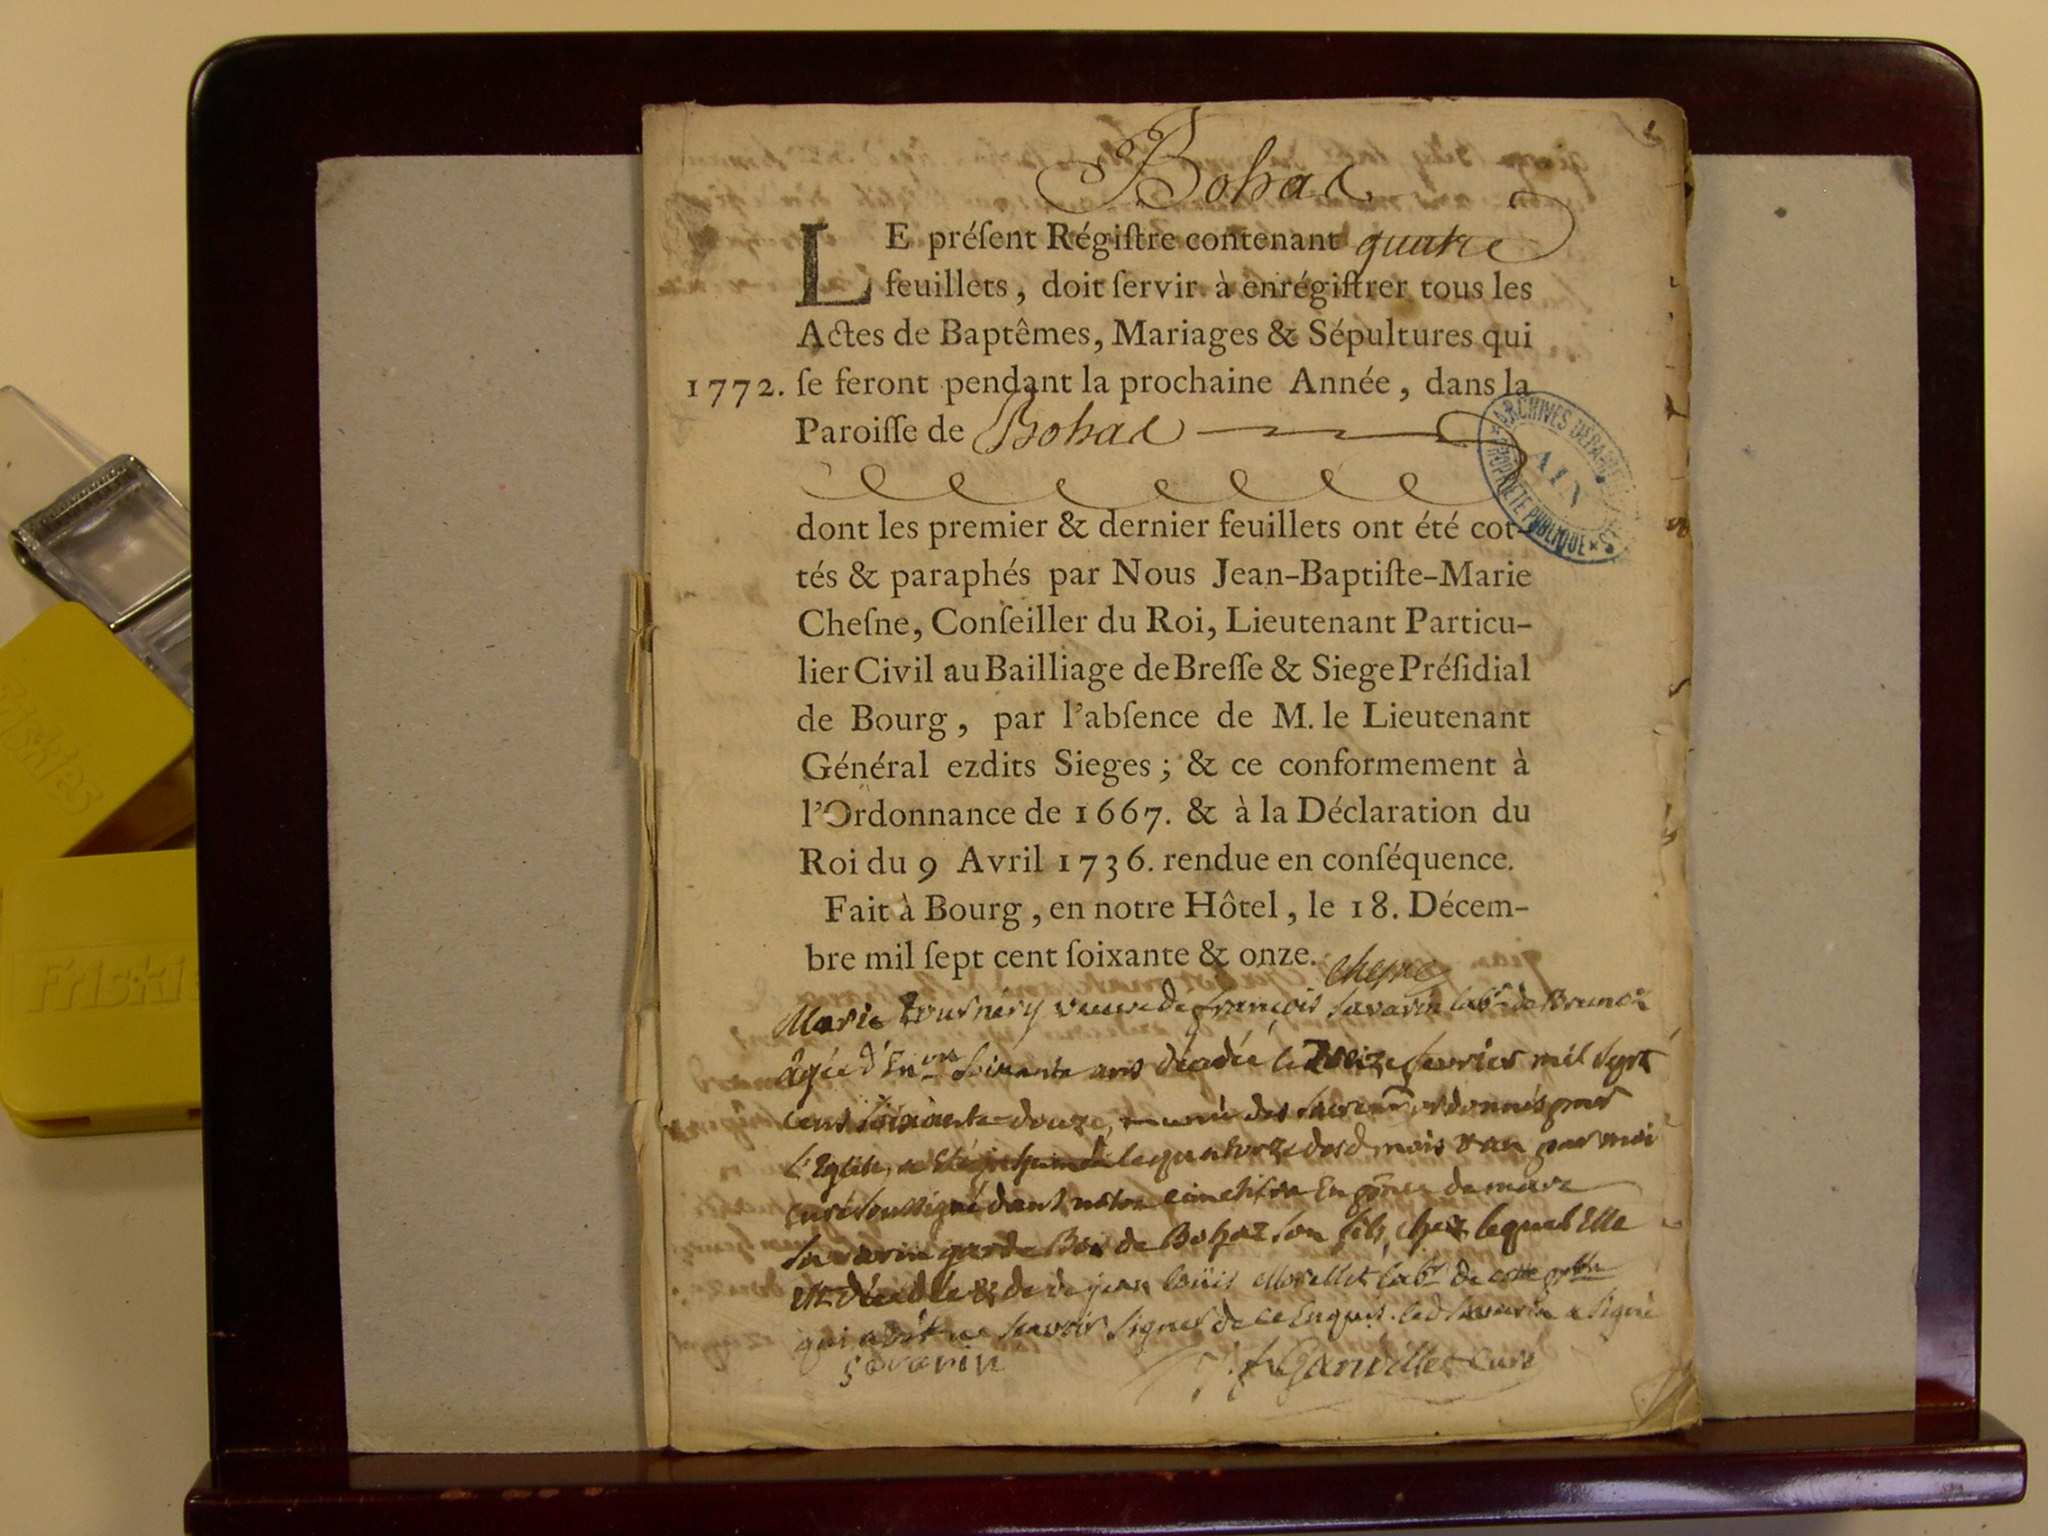 Bohas
LE préſent Régiſtre contenant quatre
feuillets, doit ſervir à enrégiſtrer tous les
Actes de Baptêmes, Mariages & Sépultures qui
1772. ſe feront pendant la prochaine Année, dans la
Paroiſſe de Bohas
dont les premier & dernier feuillets ont été cot-
tés & paraphés par Nous Jean-Baptiſte-Marie
Cheſne, Conſeiller du Roi, Lieutenant Particu-
lier Civil au Bailliage de Breſſe & Siege Préſidial
de Bourg, par l'abſence de M. le Lieutenant
Général ezdits Sieges; & ce conformement à
l'Ordonnance de 1667. & à la Déclaration du
Roi du 9 Avril 1736. rendue en conſéquence.
Fait à Bourg, en notre Hôtel, le 18. Décem-
bre mil ſept cent ſoixante & onze. Chesne
Marie veuve de françois Savarin labr de
agée d'Enon Soixante ans décédée le Treize fevrier mil sept
cent soixante douze, munie des sacremts ordonnés par
l'Eglise, a Eté inhumée le quatorze desd mois et an par moi
curé soussigné dans notre cimetière En pnce de marc
Savarin garde Bois de Bohaz son fils chez lequel Elle
est décédée & de de jean loüis Morellet labr de cette psse
qui a dit ne sçavoir signer de ce Enquis. led Savarin a signé
savarin
curé
ARCHIVES DÉPARTEMENTALES
AIN
PROPRIÉTÉ PUBLIQUE
Friskies
Friskies